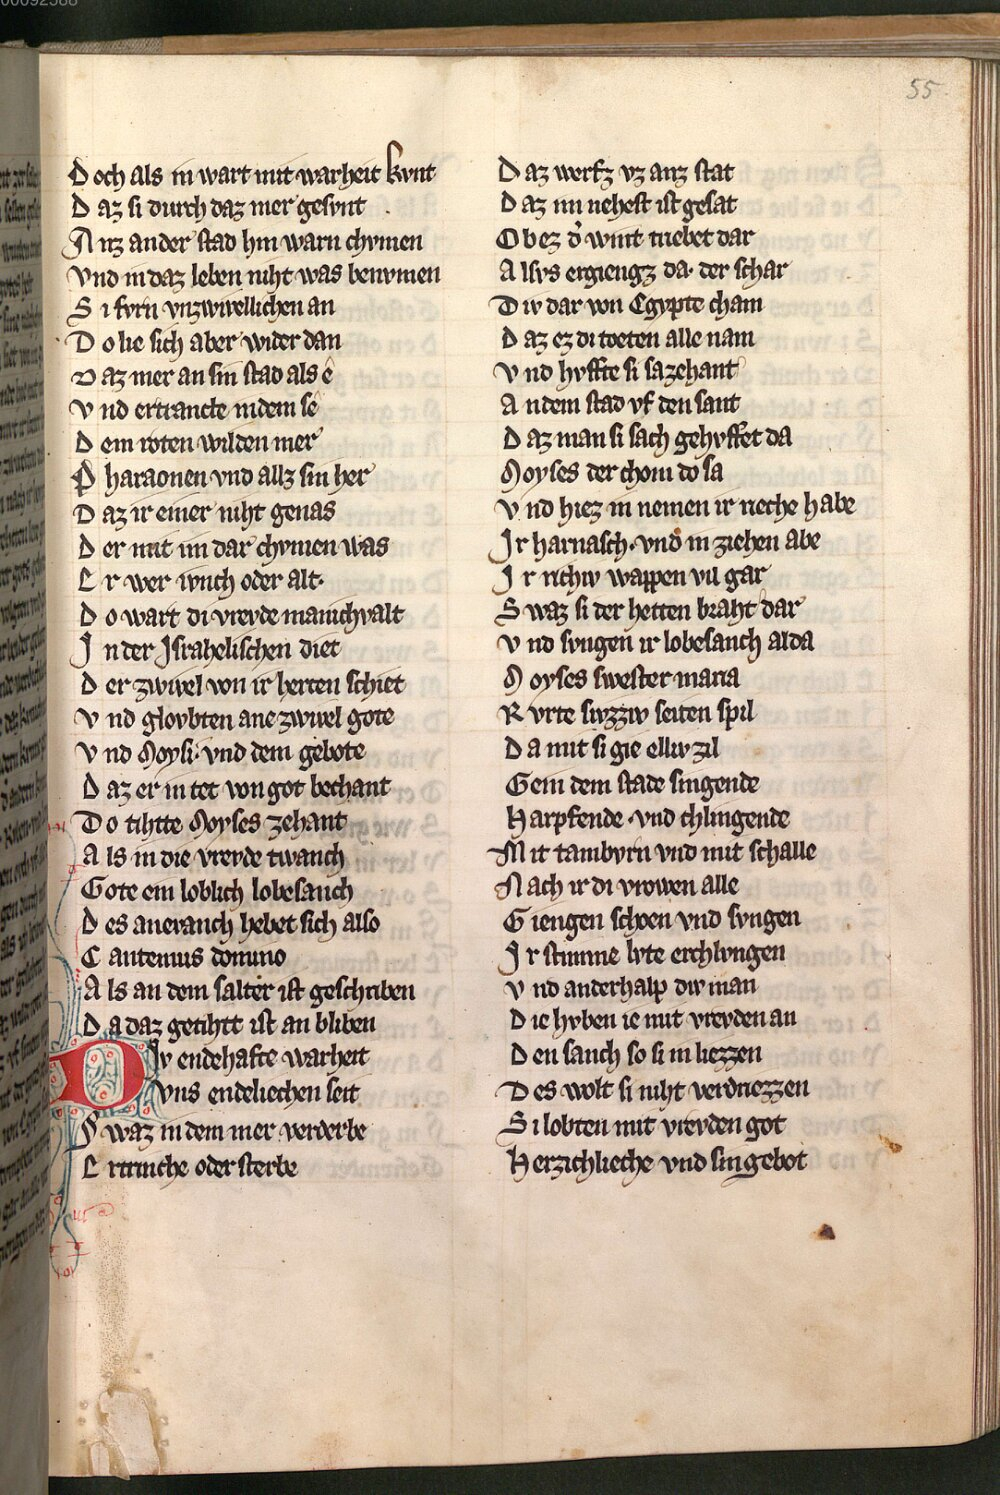 55
Doch als in wart mit warheit kvnt
Daz si durch daz mer gesvnt
Anz ander stad hin warn chvmen
Vnd in daz leben niht was benvmen
Si fvrn vnzwivellichen an
Do lie sich aber wider dan
Daz mer an sin stad als ê
Vnd ertrancte in dem sê
Dem roten wilden mer
Pharaonen vnd allz sin her
Daz ir einer niht genas
Der mit im dar chvmen was
Er wer ivnch oder alt·
Do wart di vrevde manichvalt
In der Israhelischen diet
Der zwivel von ir herten schiet
Vnd glovbten ane zwivel gote
Vnd Moysi· vnd dem gebote
Daz er in tet von got bechant
Do tihtte Moyses zehant
Als in die vrevde twanch
Gote ein loblich lobesanch
Des anevanch hebet sich also
Cantemus domino
Als an dem salter ist geschriben
Da daz getihtt ist an bliben
Div endehafte warheit
Vns endeliechen seit
Swaz in dem mer verderbe
Ertrinche oder sterbe
Daz werfz vz anz stat
Daz im nehest ist gesat
Ob ez d̓ wint tribet dar
Alsvs ergiengz da· der schar
Div dar von Egypte cham
Daz ez di toeten alle nam
Vnd hvffte si sazehant
An dem stad vf den sant
Daz man si sach gehvffet da
Moyses der chom do sa
Vnd hiez in nemen ir riche habe
Ir harnasch· vnd̓ in ziehen abe
Ir richiv wappen vil gar
Swaz si der hetten braht dar
Vnd svngen ir lobesanch alda
Moyses swester maria
Rvrte svzziv seiten spil
Da mit si gie elliv zil
Gein dem stade singende
Harpfende· vnd chlingende
Mit tambvrn vnd mit schalle
Nach ir di vrowen alle
Giengen schoen vnd svngen
Ir stimme lvte erchlvngen
Vnd anderhalp div man
Die hvben ie mit vrevden an
Den sanch so si in liezzen
Des wolt si niht verdriezzen
Si lobten mit vrevden got
Herzichlieche vnd sin gebot